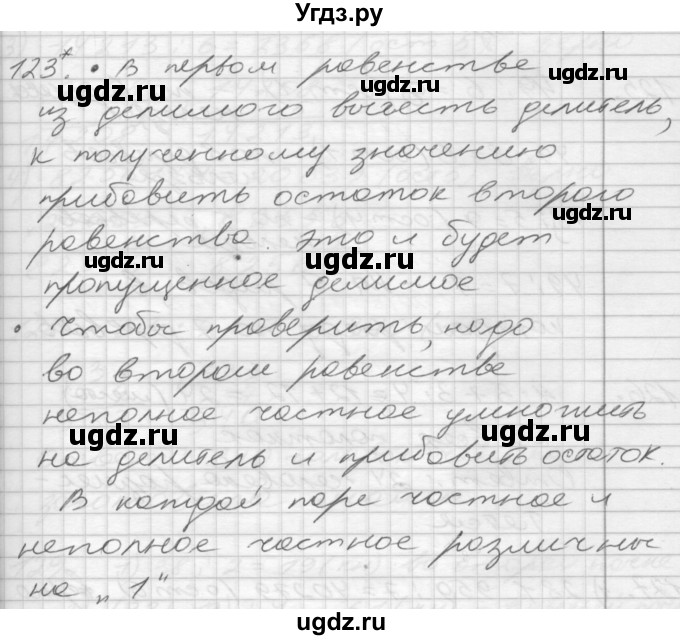 Угдз.ру
123*. • В первом равенстве
из делимого вычесть делитель,
к полученному значению
прибавить остаток второго
равенства. это и будет
пропущенное делимое
• Чтобы проверить, надо
во втором равенстве
неполное частное умножить
на делитель и прибавить остаток.
В каждой паре частное и
неполное частное различны
на „1"
ugdz.ru
ugdz.ru
ugdz.ru
ugdz.ru
ugdz.ru
ugdz.ru
ugdz.ru
ugdz.ru
ugdz.ru
ugdz.ru
ugdz.ru